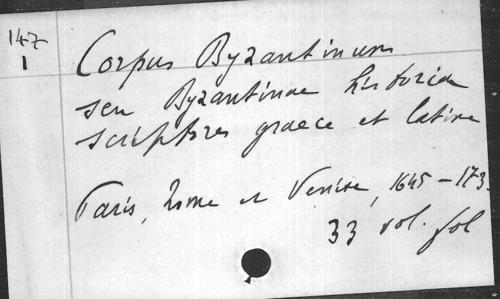 147
1
Corpus Byzantinum
seu Byzantinae historiae
scriptores graece et latine
Paris, Rome et Venise, 1645-173
33 vol. fol